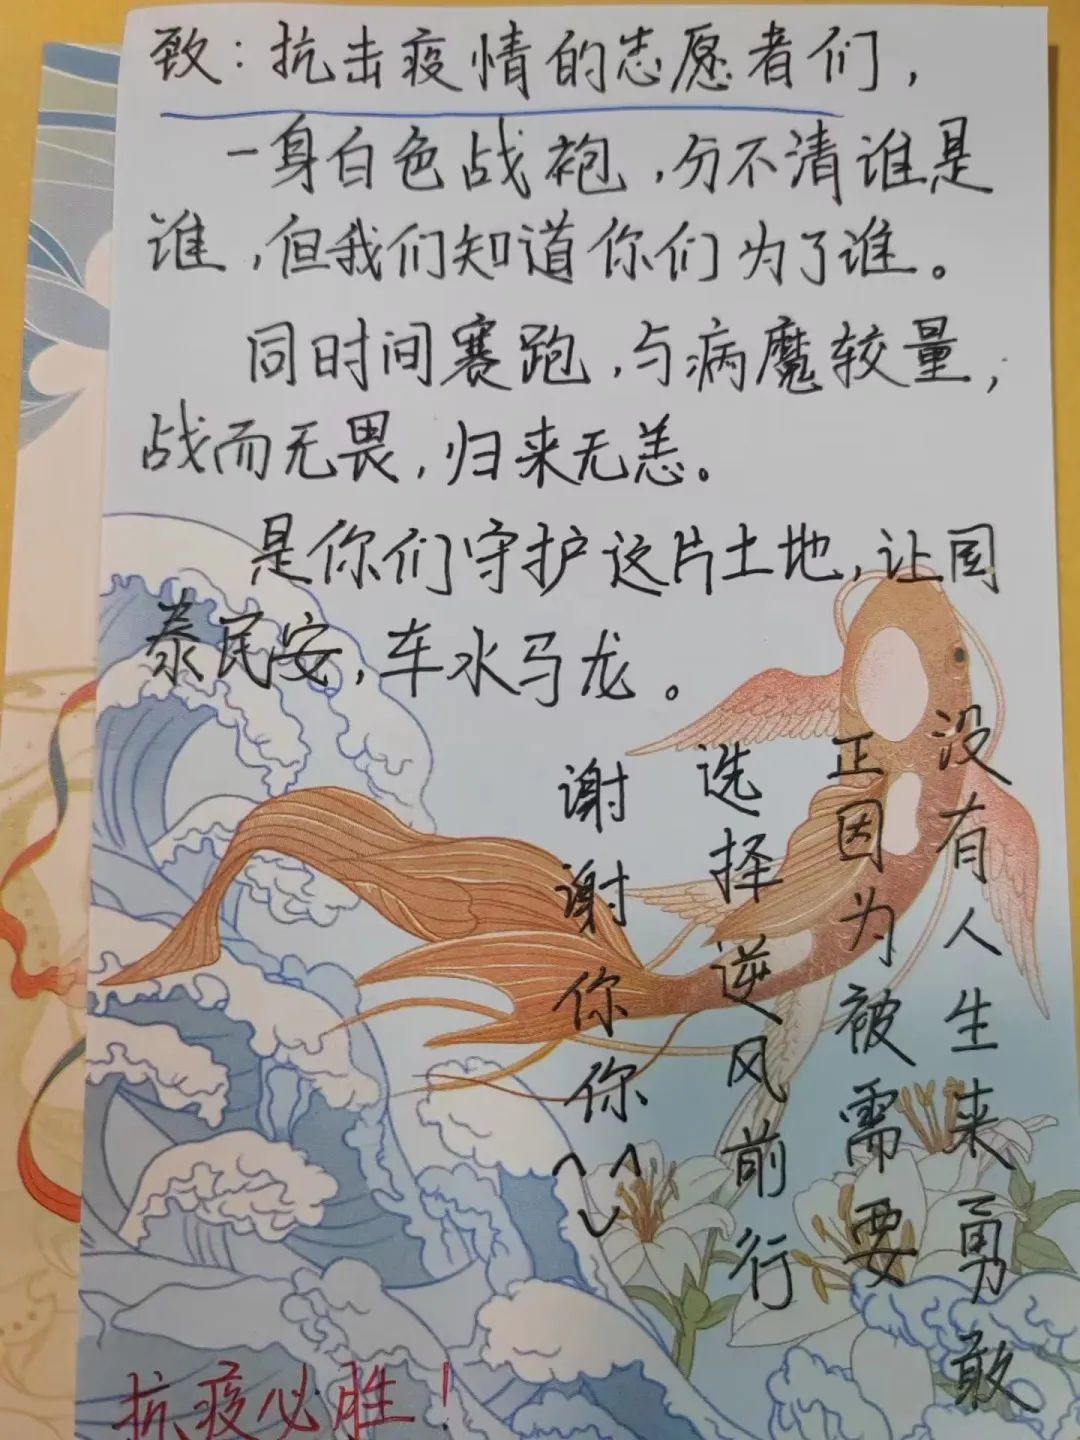 致：抗击疫情的志愿者们，
一身白色战袍，分不清谁是
谁，但我们知道你们为了谁。
同时间赛跑，与病魔较量，
战而无畏，归来无恙。
是你们守护这片土地，让国
泰民安，车水马龙。
没有人生来勇敢
正因为被需要
选择逆风前行
谢谢你你
抗疫必胜！